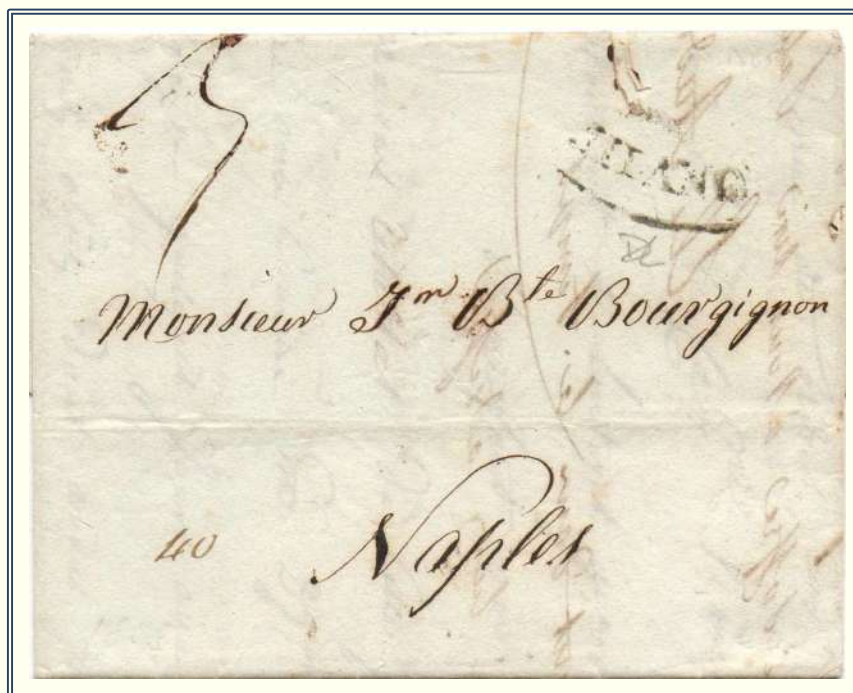 MILANO
Monsieur Jn Bte Bourgignon
Naples
40